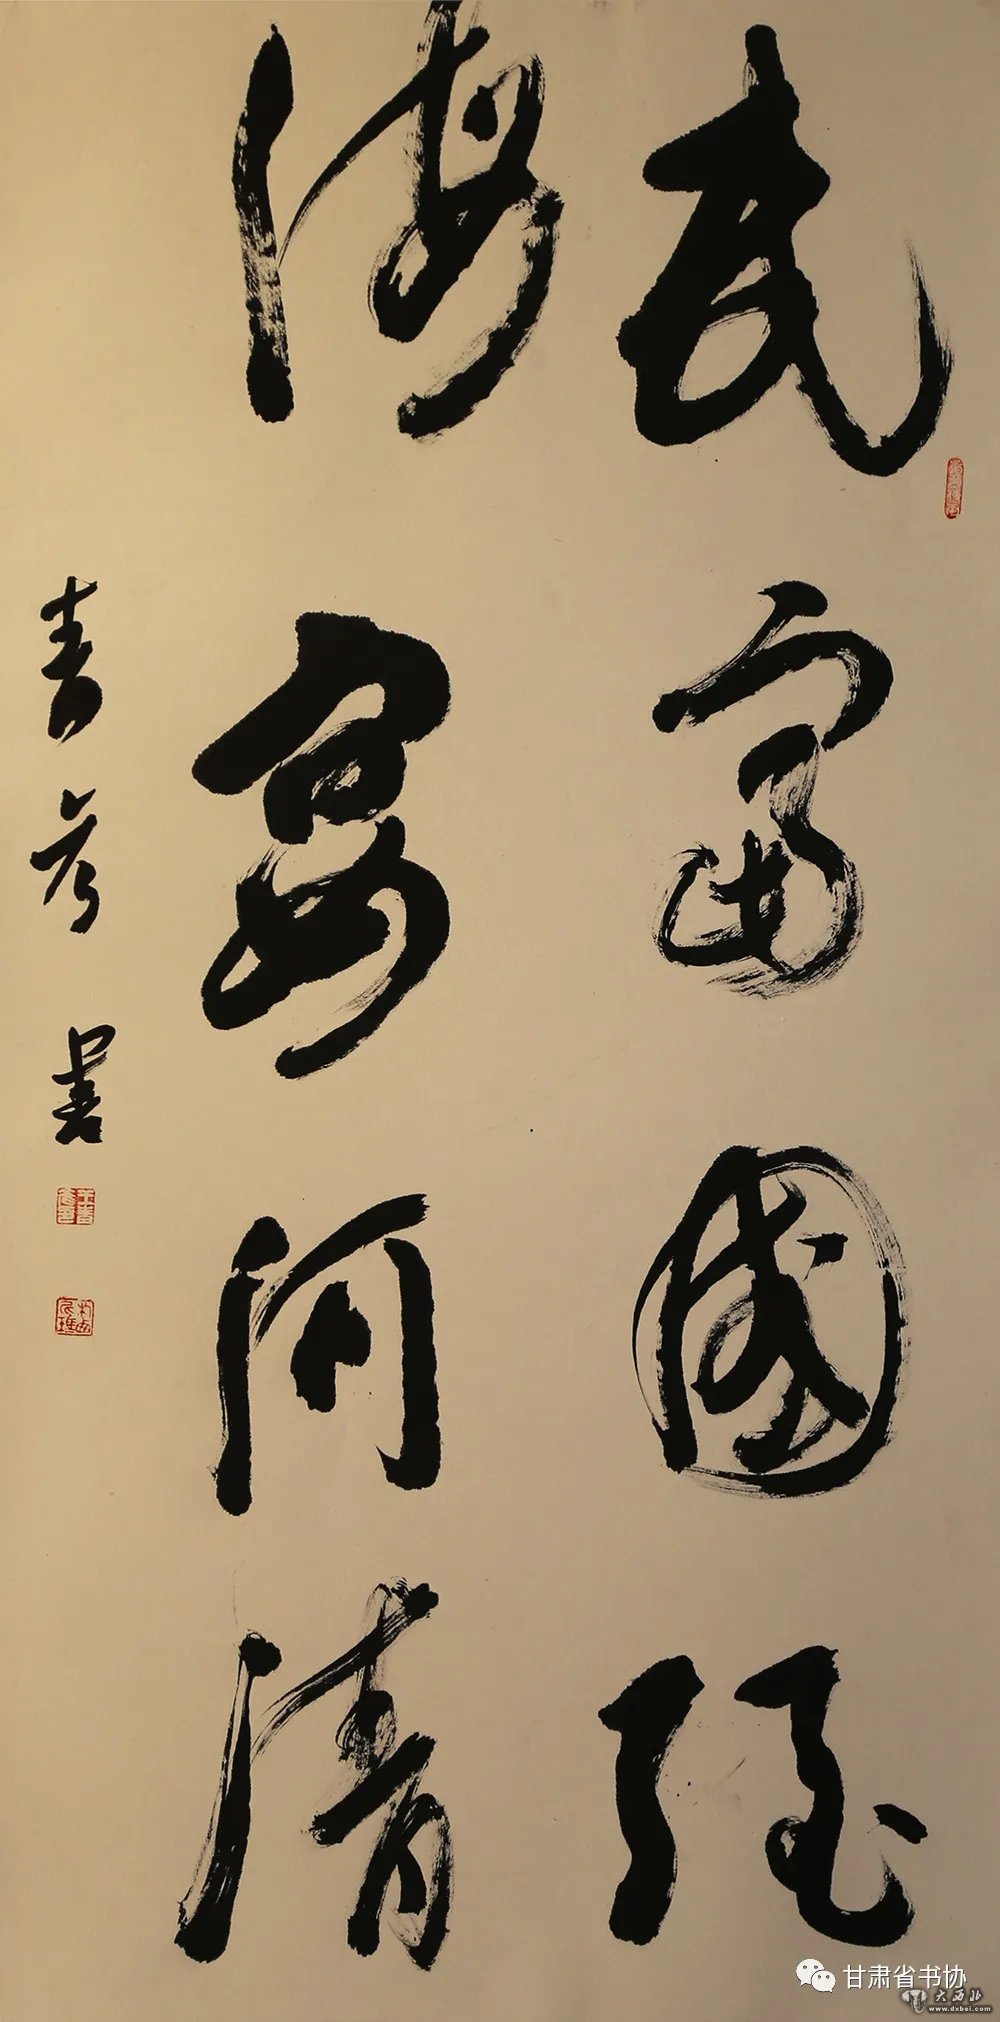 民富國强
海晏河清
青彦書
甘肃省书协
大西北
www.dxbei.com